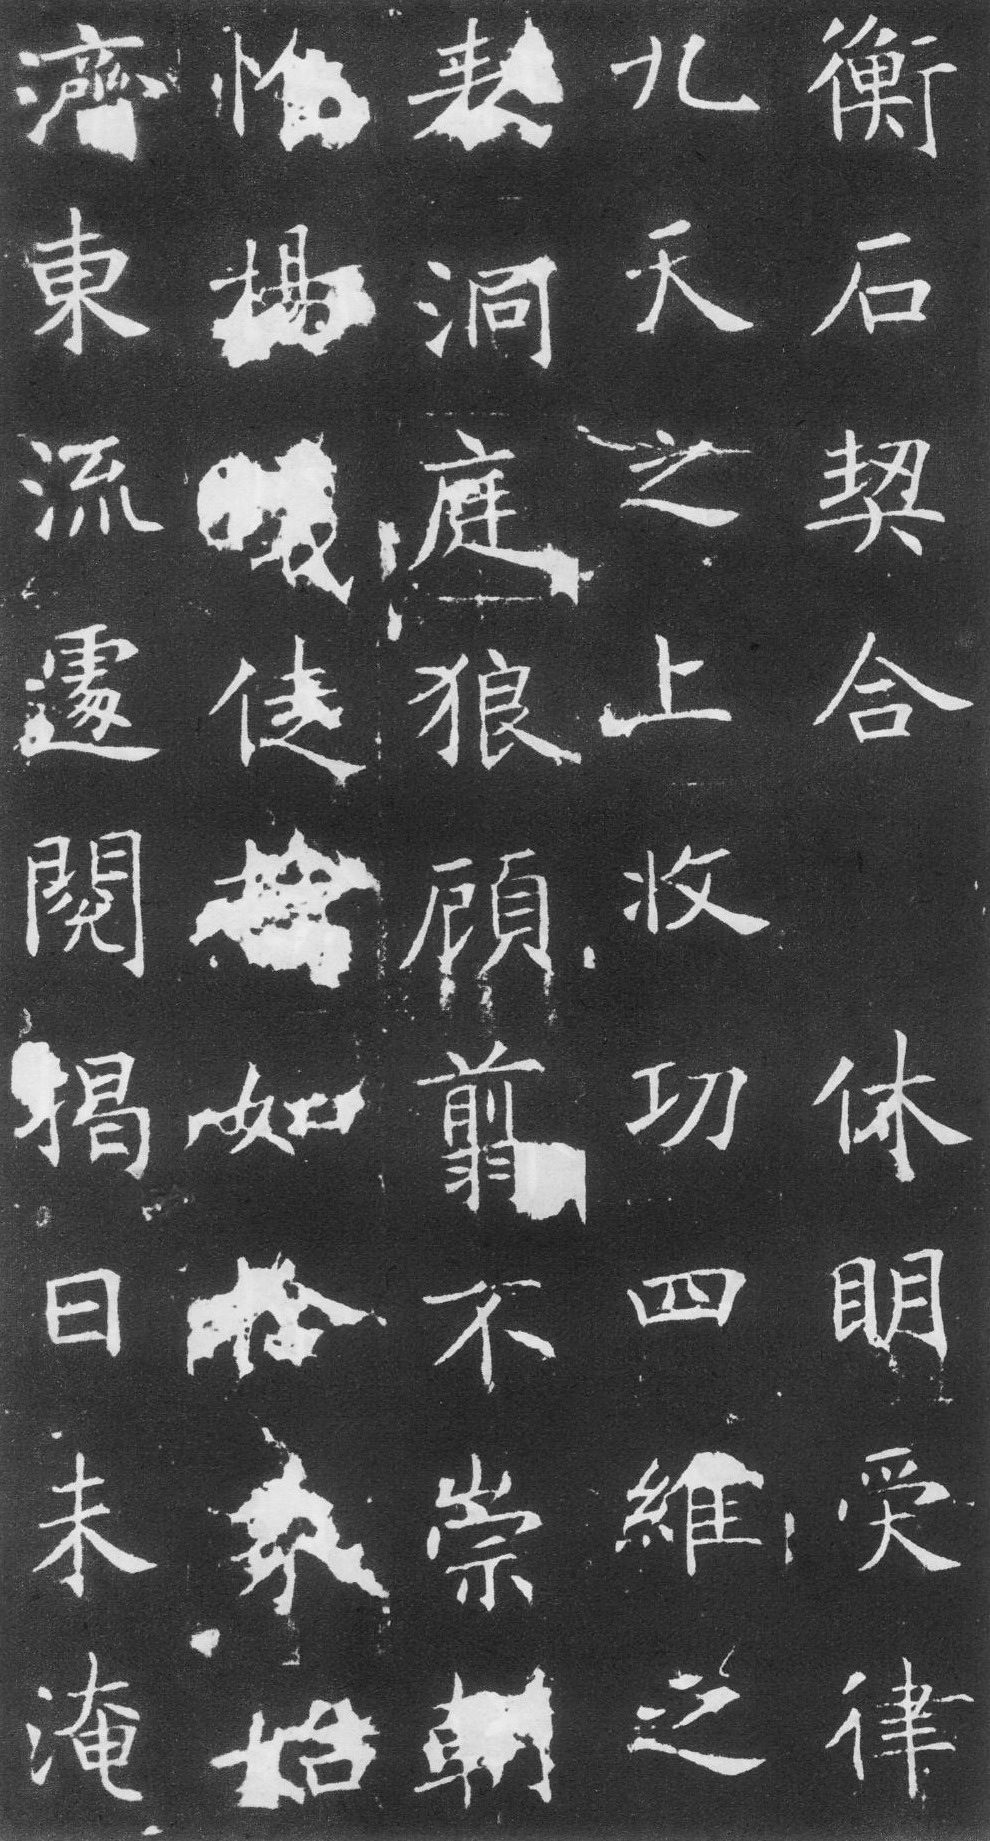 衡石契合 休明受律
九天之上收功四維之
表洞庭狼顧翦不崇朝
惟揚徒如拾姑
濟東流遽閱揭日未淹